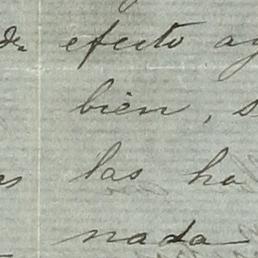 efecto
bien, s
las ha
nada